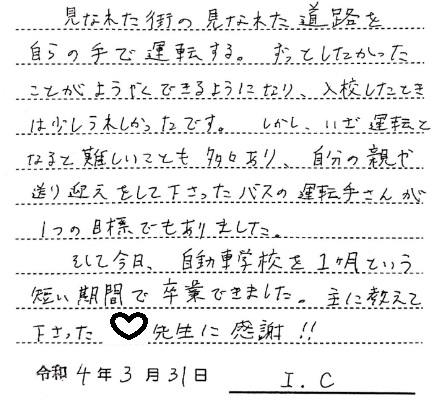 見なれた街の見なれた道路を
自らの手で運転する。ずっとしたかった
ことがようやくできるようになり、入校したとき
は少しうれしかったです。しかし、いざ運転と
なると難しいことも多々あり、自分の親や
送り迎えをして下さったバスの運転手さんが
1つの目標でもありました。
そして今日、自動車学校を1ヶ月という
短い期間で卒業できました。主に教えて
下さった♡先生に感謝!!
令和4年3月31日 I.C